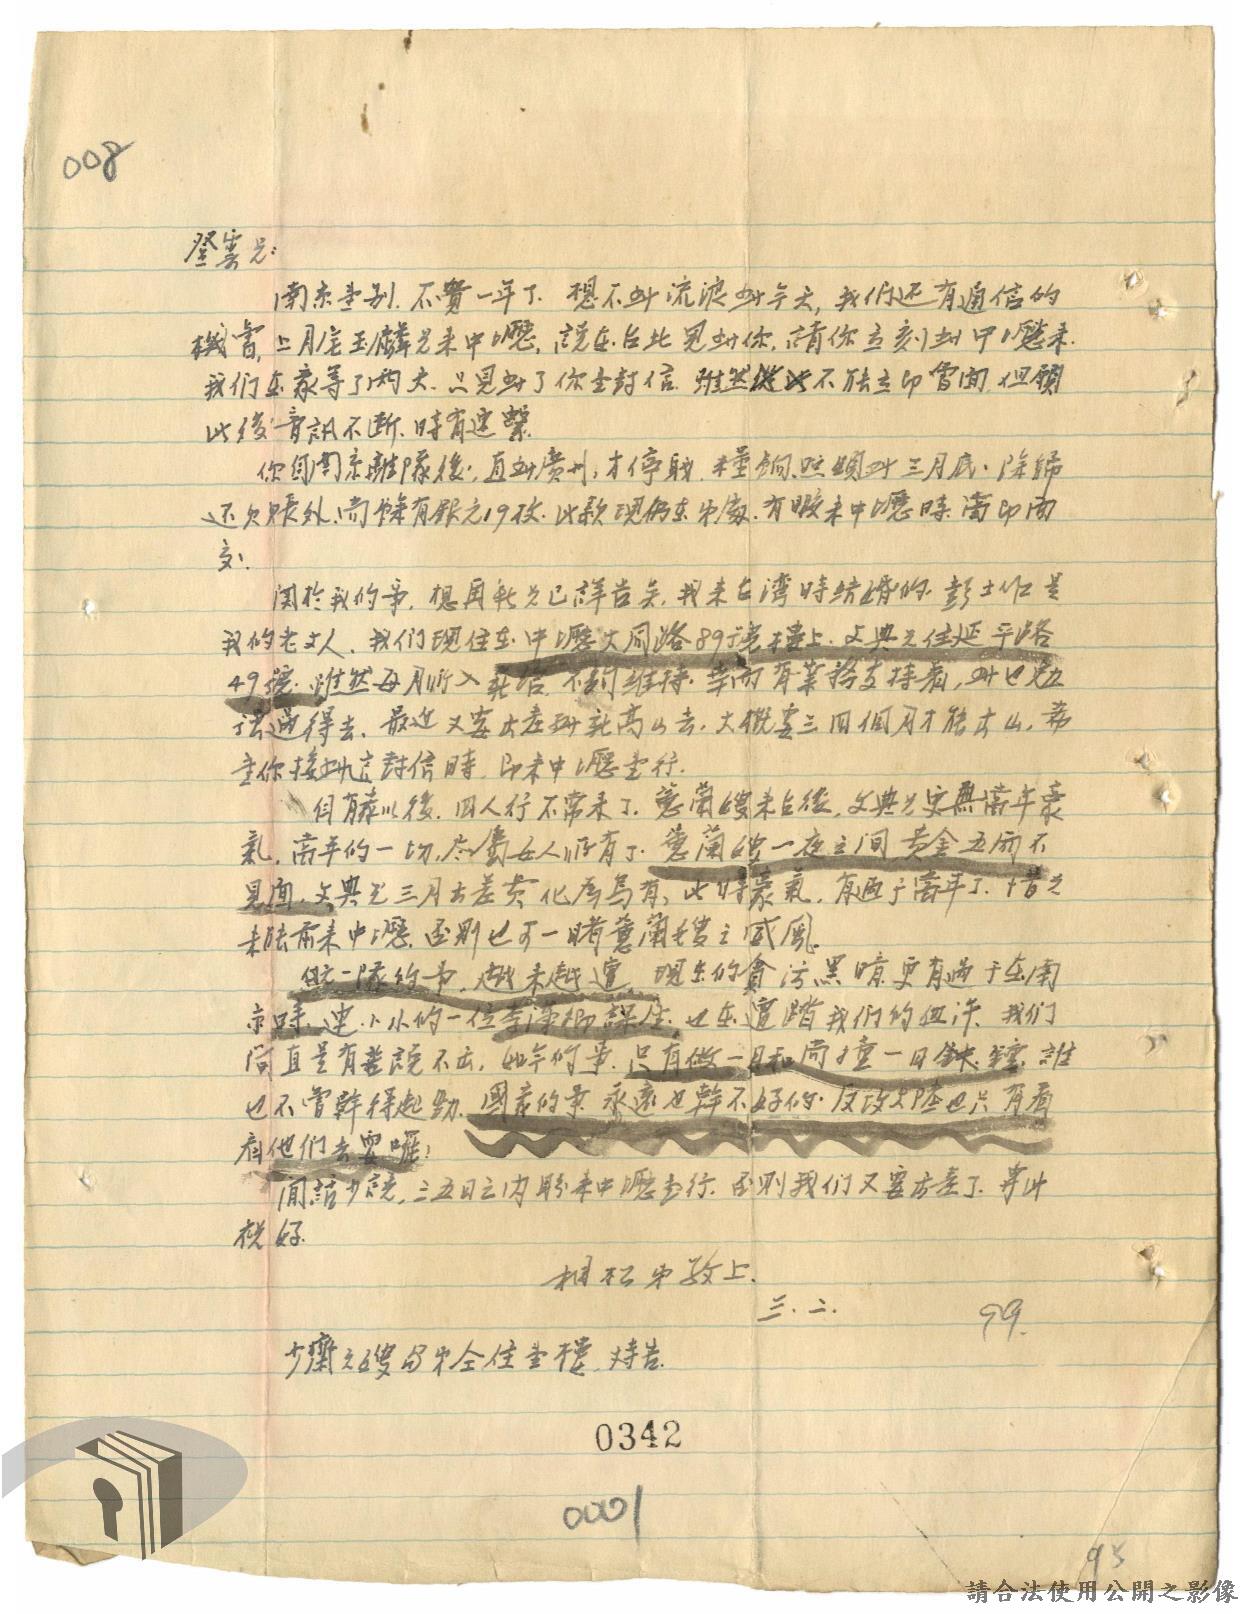 008
登雲兄：
南京一別，不覺一年了，想不到流浪到今天，我们还有通信的
機會，上月底玉麟兄来中壢，説在台北見到你，請你立刻到中壢来，
我们在家等了两天，只見到了你一封信，雖然不能立即會面，但願
此後音訊不断，時有連繫，
你自南京離隊後，直到廣州，才停職，糧餉照領到三月底，除歸
还欠賬外，尚餘有銀元19枚，此款現仍在弟處，有暇来中壢時，當即面
交，
関於我的事，想再兄已詳告矣，我来台湾時結婚的，彭士 是
我的老丈人，我们現住在中壢大同路89号樓上，文典兄住延平路
49號，雖然每月所入 不夠維持，幸而有業務支持着，到也勉
强過得去，最近又要出差到新高山去，大概要三四個月才能出山，希
望你接到這封信時，即来中壢一行，
自有 以後，四人行不常来了，蕙蘭嫂来台後，文典兄更無當年豪
氣，當年的一切，尽屬女人所有了，蕙蘭嫂一夜之间黄金五両不
見面，文典兄三月出差费化為烏有，此時豪氣，有過于當年了，惜兄
未能前来中壢，否則也可一睹蕙蘭嫂之威風，
統一隊的事，越来越遭，現在的貪污黑暗更有過于在南
京時，連小小的一位李漢卿課 ，也在遭踏我们的血汗，我们
简直是有苦説不出，如今的事，只有做一日和尚撞一日鐘，誰
也不會幹得起劲，國家的事永遠也幹不好的，反攻大陸也只有看
看他们去耍囉！
閒話少説，三五日之内盼来中壢一行，否則我们又要出差了，専此
祝好
相松弟敬上，
三．二．
99.
少齋兄嫂与弟仝住一樓，特告，
0342
0001
95
請合法使用公開之影像